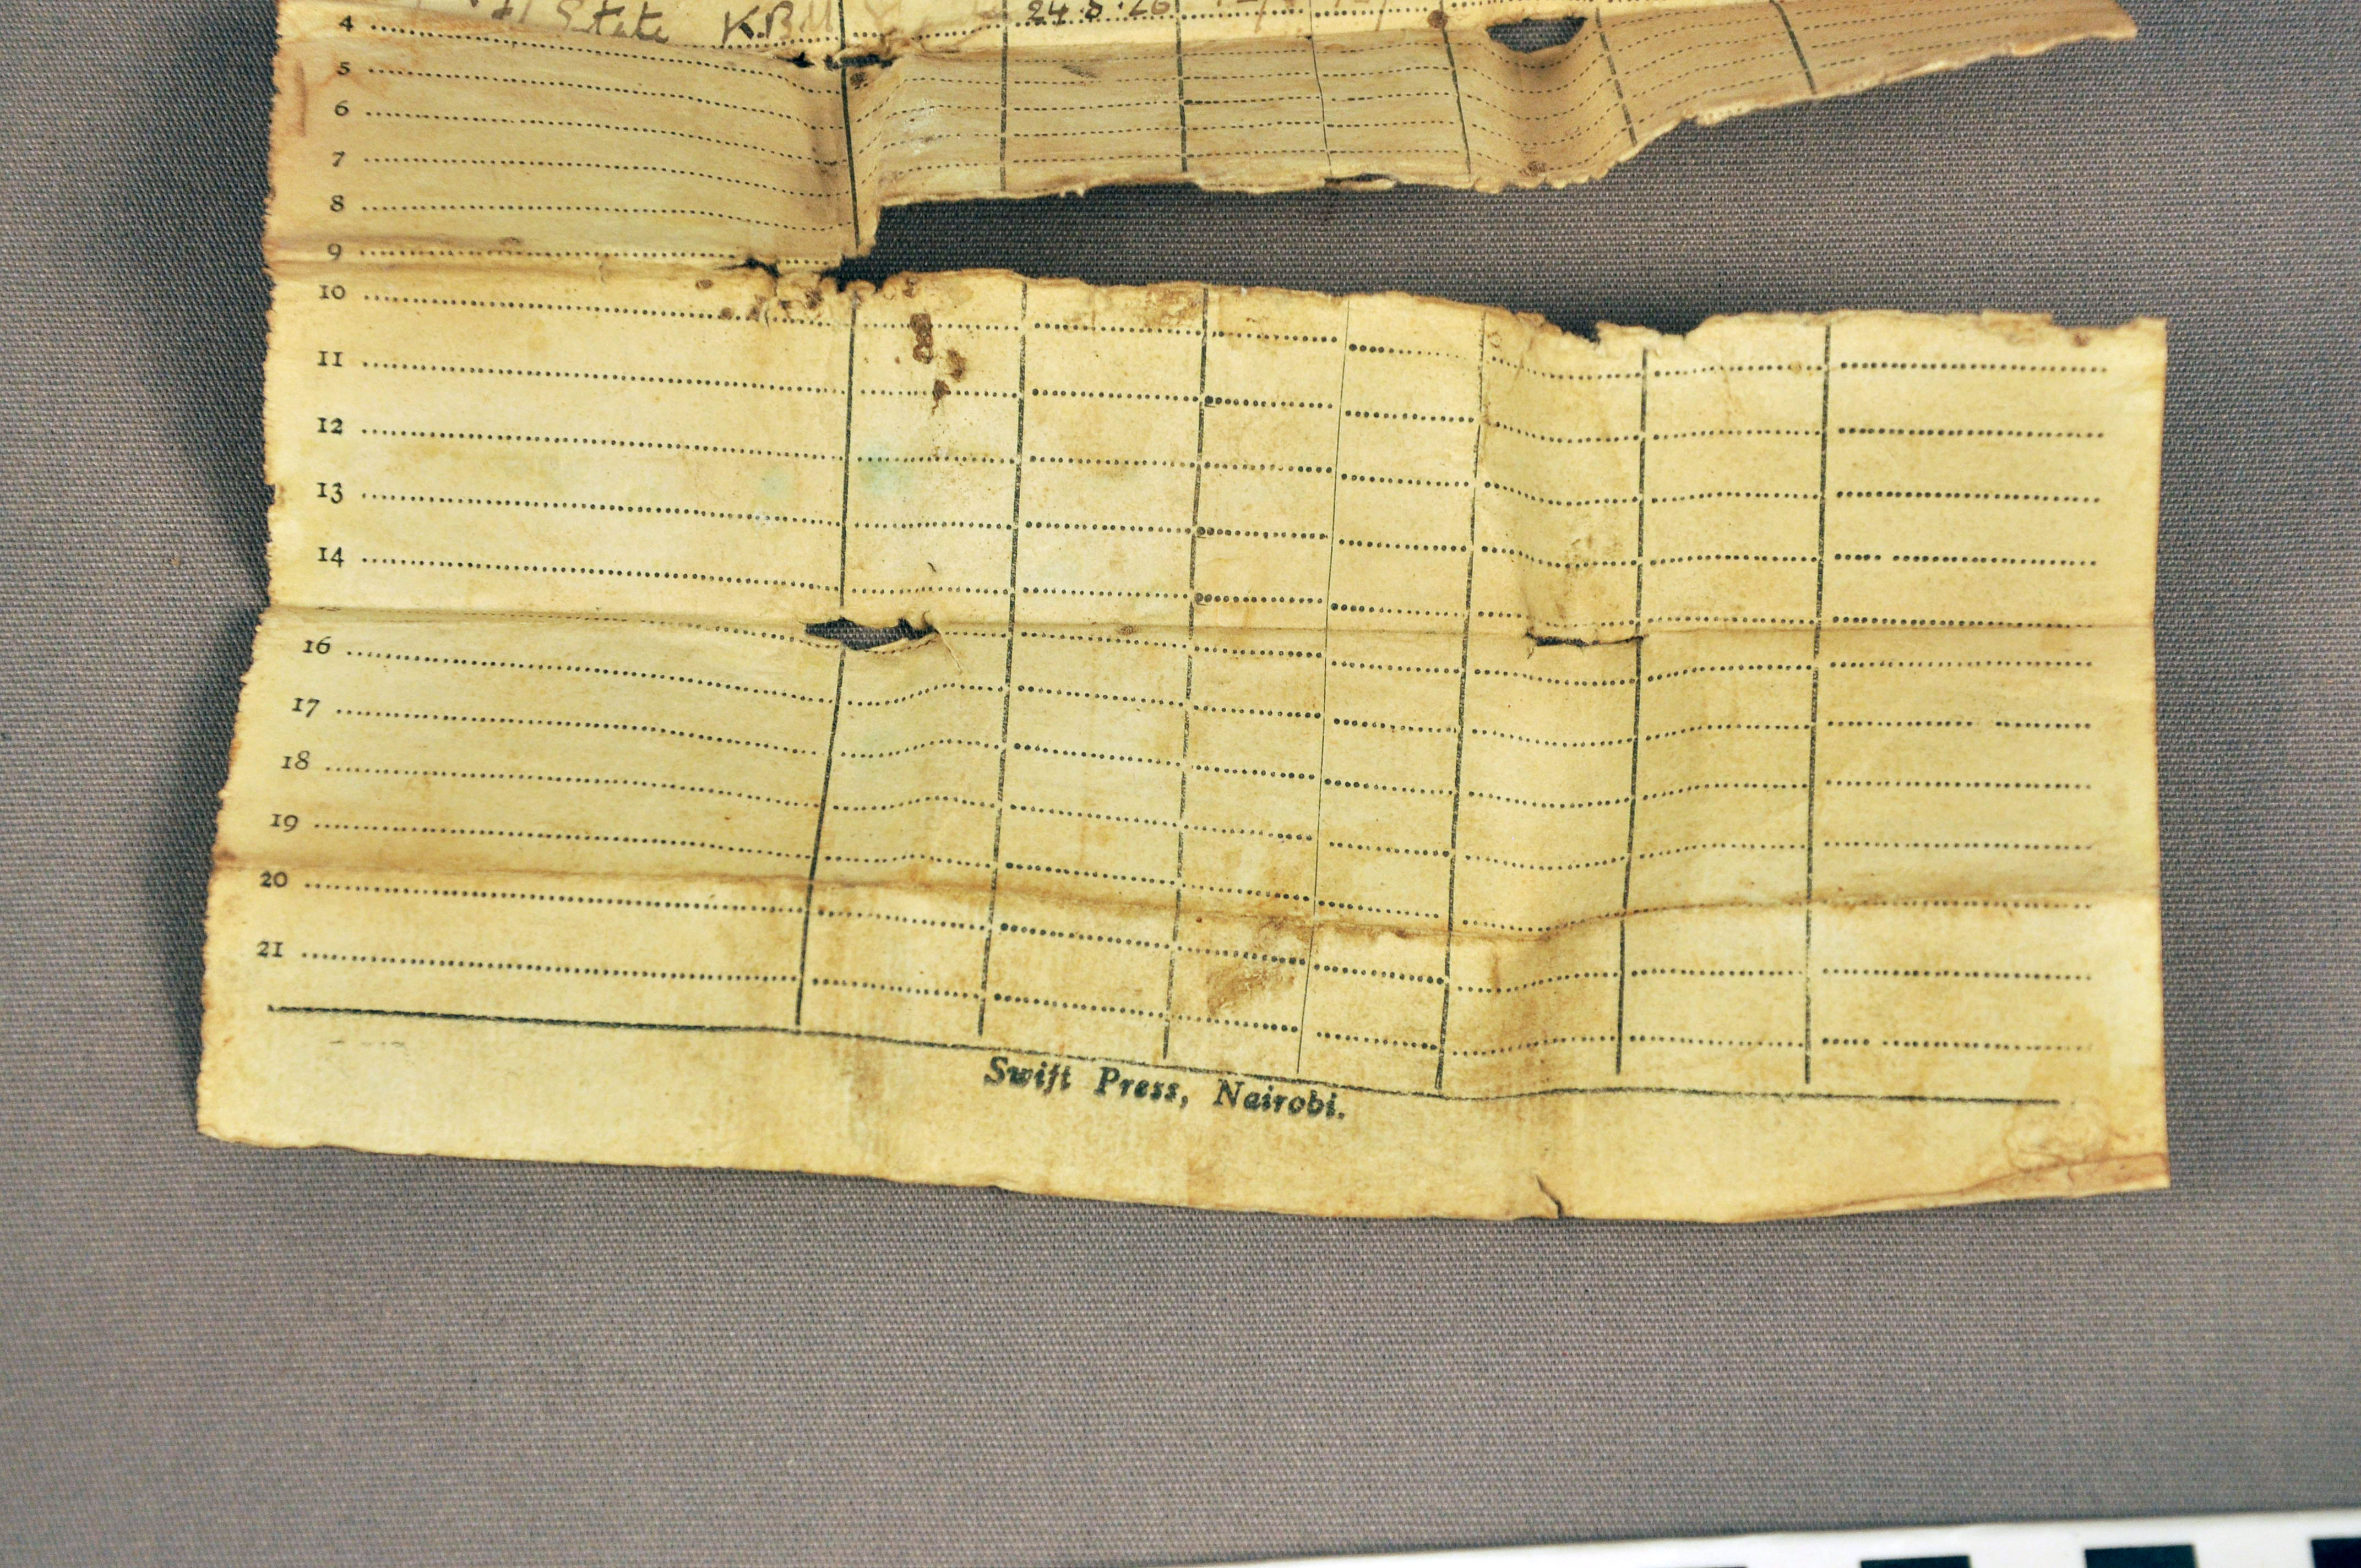 4 State 24.5.26
5
6
7
8
9
10
11
12
13
14
16
17
18
19
20
21
Swift Press, Nairobi.